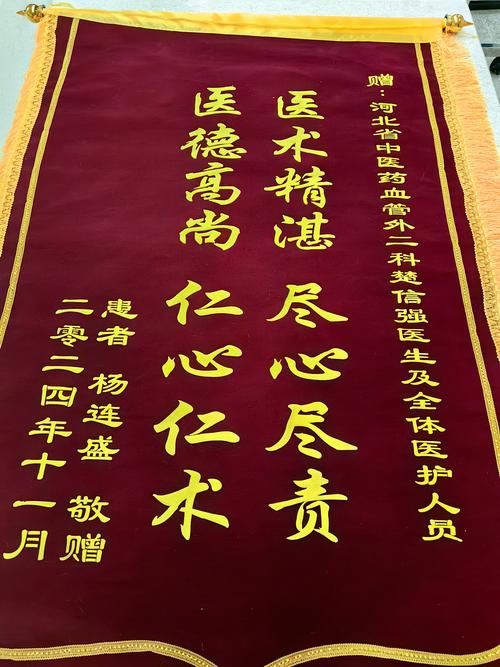 赠：河北省中医药血管外二科楚信强医生及全体医护人员
医术精湛 尽心尽责
医德高尚 仁心仁术
患者 杨连盛 敬赠
二零二四年十一月